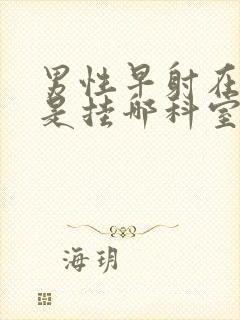 男性早射在
是挂哪科室
海玥